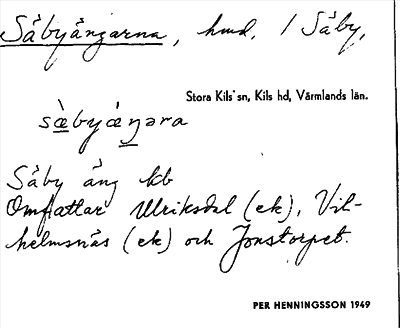 Såbyängarna, hmd, i Såby,
Stora Kils sn, Kils hd, Värmlands län.
sæ̀byǽŋəra
Såby äng kb
Omfattar Ulriksdal (ek), Vil-
helmsnäs (ek) och Jonstorpet.
PER HENNINGSSON 1949